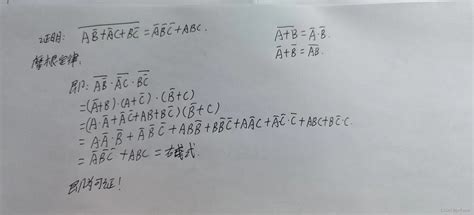 证明: $\overline{A\bar{B}+\bar{A}C+B\bar{C}}=\bar{A}\bar{B}\bar{C}+ABC.$
$\overline{A+B}=\bar{A}\cdot\bar{B}.$
摩根定律.
$\bar{A}+\bar{B}=\overline{AB}.$
即: $\overline{A\bar{B}}\cdot\overline{\bar{A}C}\cdot\overline{B\bar{C}}$
$=(\bar{A}+B)\cdot(A+\bar{C})\cdot(\bar{B}+C)$
$=(A\cdot\bar{A}+\bar{A}\bar{C}+AB+B\bar{C})(\bar{B}+C)$
$=A\bar{A}\cdot\bar{B}+\bar{A}\bar{B}\bar{C}+AB\bar{B}+B\bar{B}\bar{C}+A\bar{A}C+\bar{A}\bar{C}\cdot C+ABC+B\bar{C}\cdot C.$
$=\bar{A}\bar{B}\bar{C}+ABC=$右式.
即可证!